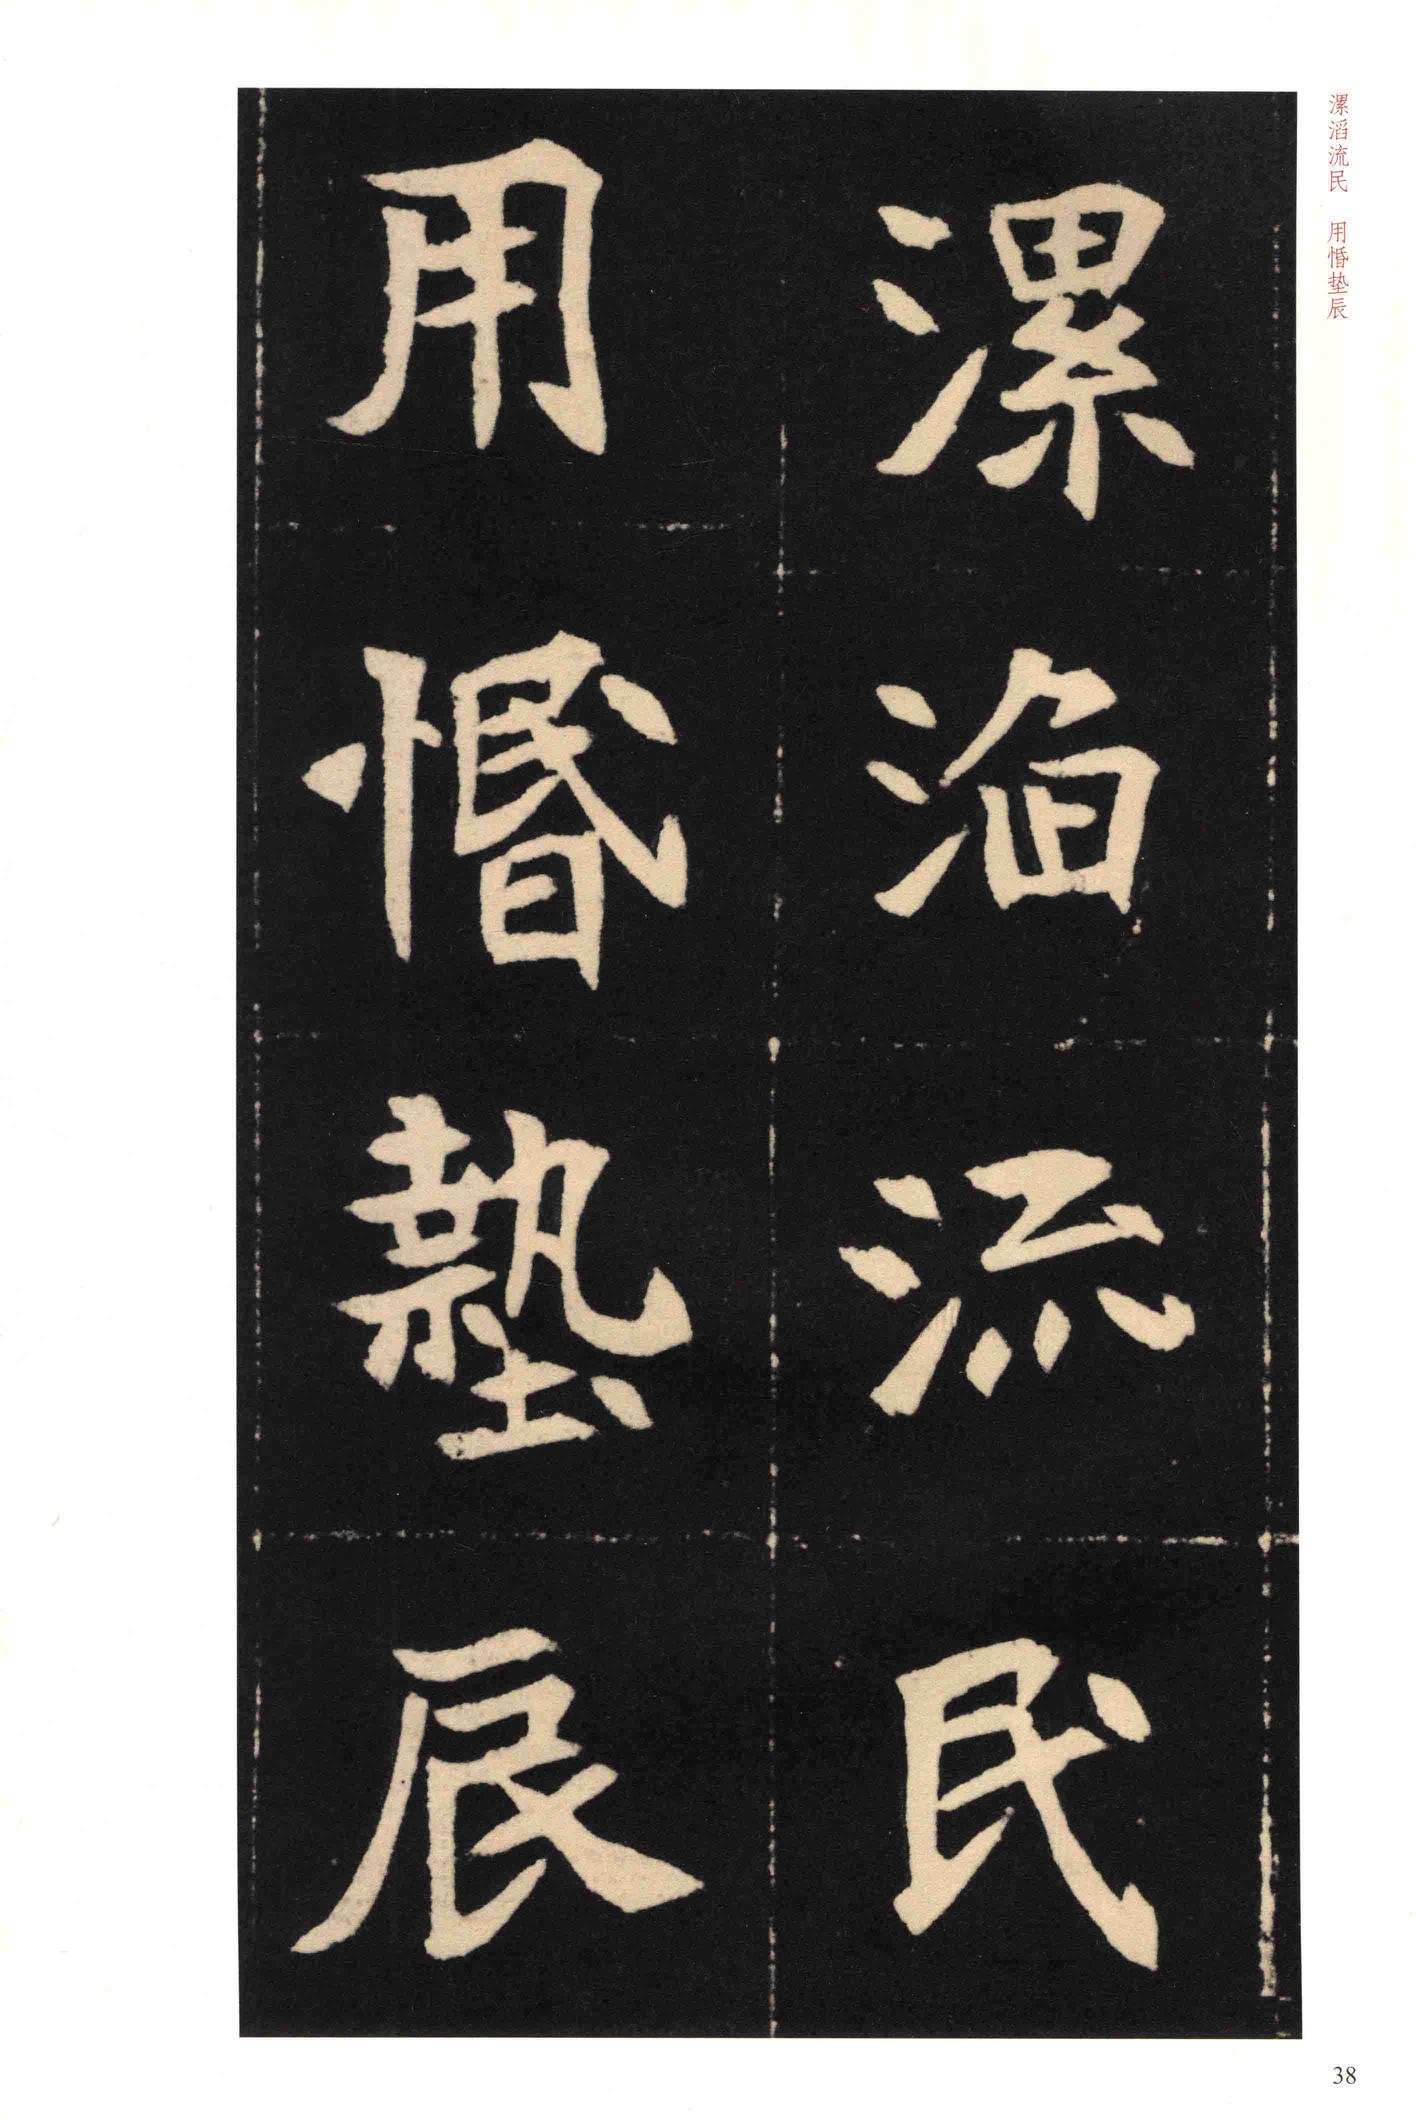 漯滔流民　用惛垫辰
漯滔流民
用惛墊辰
38